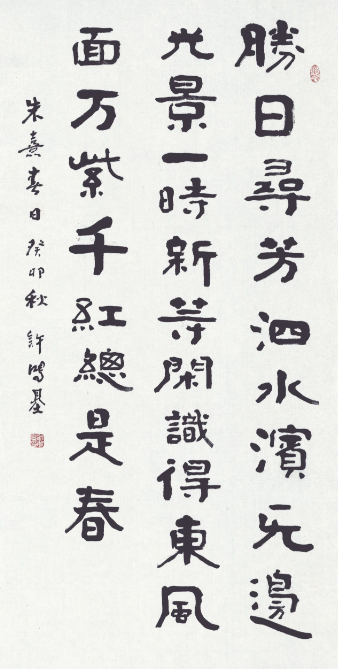 勝日尋芳泗水濱无邊
光景一時新等閑識得東風
面万紫千紅總是春
朱熹春日癸卯秋許鴻基